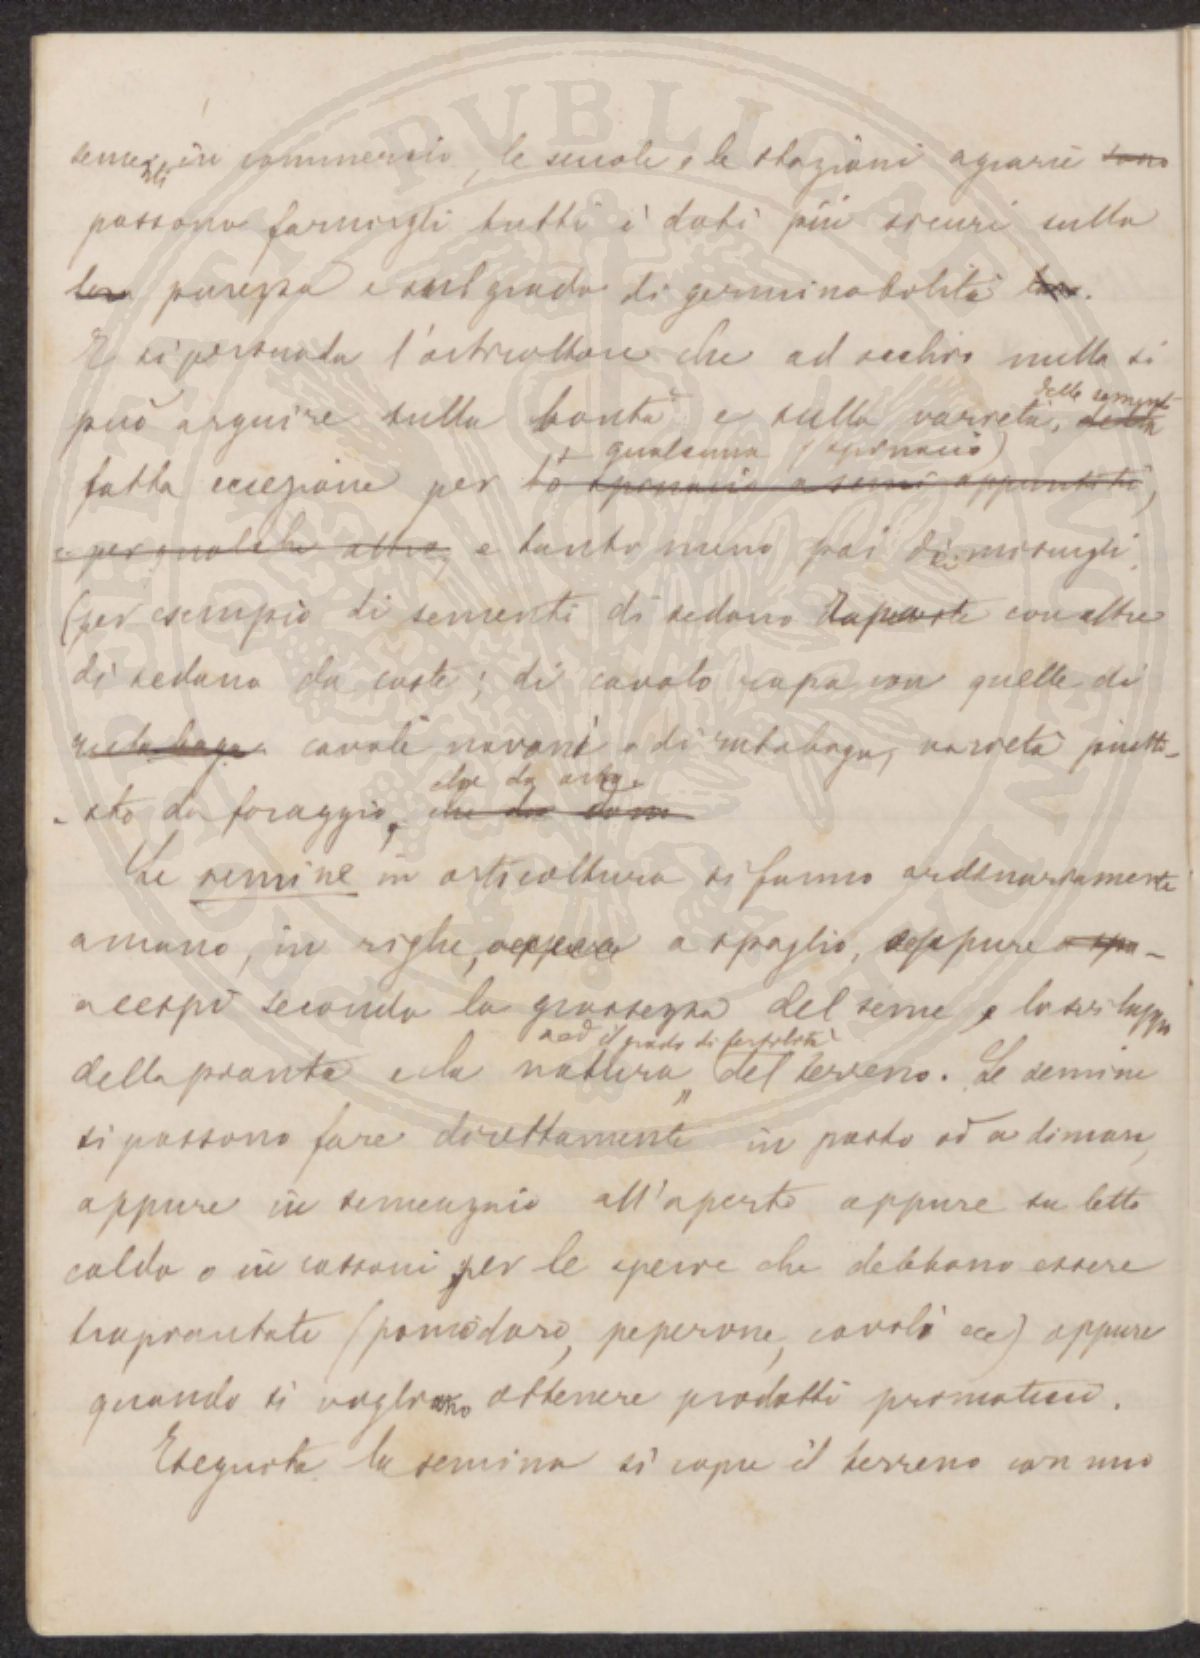 in commercio, le scuole e le stazioni agrarie sono
possono fornirgli tutti i dati più sicuri sulla
loro purezza e sul grado di germinabilità loro.
E si persuada l'orticoltore che ad occhio nulla si
delle sementi
può arguire sulla bontà e sulla varietà, della
qualcuna (spinacio)
fatta eccezione per lo spinacio a semi appuntiti,
e per qualche altro, e tanto meno poi di miscugli
(per esempio di sementi di sedano rapa con altre
di sedano da coste; di cavolo rapa con quelle di
rutabaga cavoli navoni e di rutabaga, varietà piutto-
che da orto.
- sto da foraggio, che da
Le semine in orticoltura si fanno ordinariamente
a mano, in righe, oppure a spaglio, oppure a spa-
a cespi secondo la grossezza del seme e lo sviluppo
ed il grado di fertilità
della pianta e la natura del terreno. Le semine
si possono fare direttamente in posto od a dimora,
oppure in semenzaio all'aperto oppure su letto
caldo o in cassoni per le specie che debbono essere
trapiantate (pomodoro, peperone, cavoli ecc) oppure
quando si vogliono ottenere prodotti primaticci.
Eseguita la semina si copre il terreno con uno